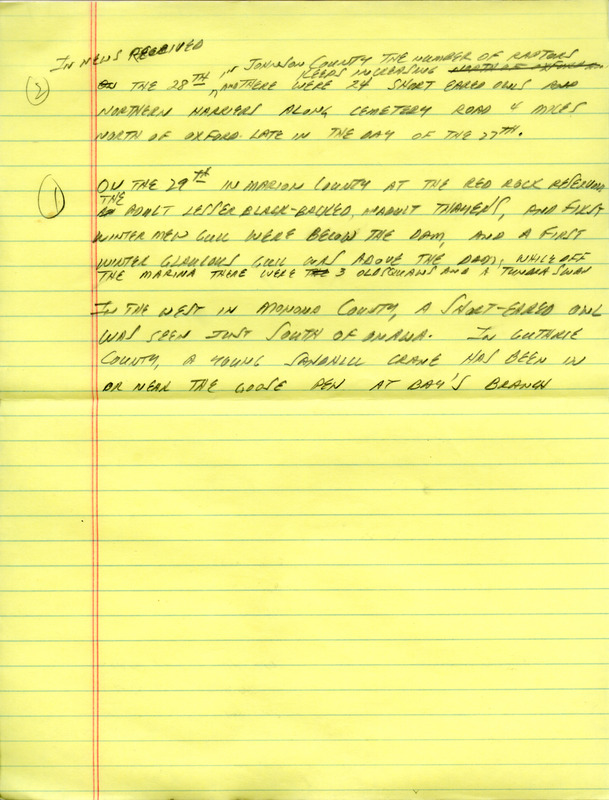 IN NEWS RECEIVED
② ON THE 28TH IN JOHNSON COUNTY THE NUMBER OF RAPTORS
KEEPS INCREASING NORTH OF OXFORD
THERE WERE 24 SHORT EARED OWLS AND
NORTHERN HARRIERS ALONG CEMETERY ROAD 4 MILES
NORTH OF OXFORD LATE IN THE DAY OF THE 27TH.
① ON THE 29TH IN MARION COUNTY AT THE RED ROCK RESERVOIR
THE ADULT LESSER BLACK-BACKED, ADULT THAYER'S, AND FIRST
WINTER MEW GULL WERE BELOW THE DAM, AND A FIRST
WINTER GLAUCOUS GULL WAS ABOVE THE DAM, WHILE OFF
THE MARINA THERE WERE THE 3 OLDSQUAWS AND A TUNDRA SWAN
IN THE WEST IN MONONA COUNTY, A SHORT-EARED OWL
WAS SEEN JUST SOUTH OF ONAWA. IN GUTHRIE
COUNTY, A YOUNG SANDHILL CRANE HAS BEEN IN
OR NEAR THE GOOSE PEN AT BAY'S BRANCH